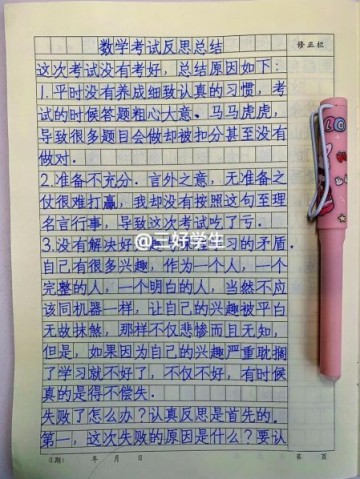 数学考试反思总结
修正栏
这次考试没有考好，总结原因如下：
1.平时没有养成细致认真的习惯，考
试的时候答题粗心大意、马马虎虎，
导致很多题目会做却被扣分甚至没有
做对．
2.准备不充分．言外之意，无准备之
仗很难打赢，我却没有按照这句至理
名言行事，导致这次考试吃了亏．
3.没有解决好
习的矛盾．
@三好学生
自己有很多兴趣，作为一个人，一个
完整的人，一个明白的人，当然不应
该同机器一样，让自己的兴趣被平白
无故抹煞，那样不仅悲惨而且无知，
但是，如果因为自己的兴趣严重耽搁
了学习就不好了，不仅不好，有时候
真的是得不偿失．
失败了怎么办？认真反思是首先的．
第一，这次失败的原因是什么？要认
日期： 年 月 日
第 页